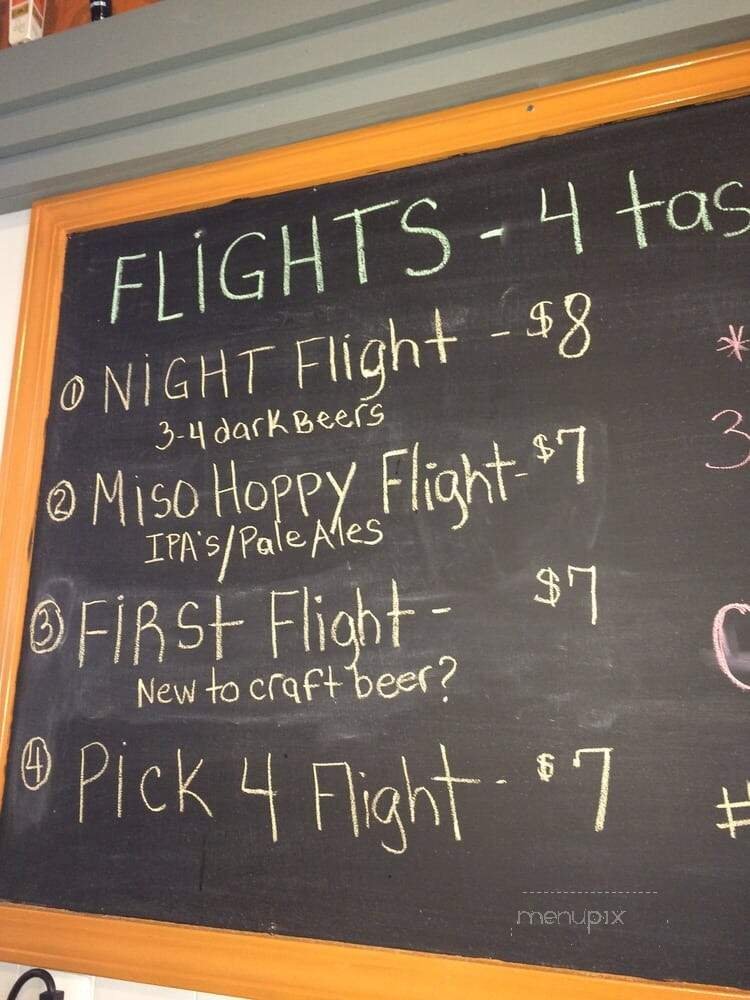 FLIGHTS - 4 tas
① NIGHT Flight - $8
3-4 dark Beers
② Miso Hoppy Flight - $7
IPA's/Pale Ales
③ FIRSt Flight - $7
New to craft beer?
④ Pick 4 Flight - $7
*
3
#
menupix